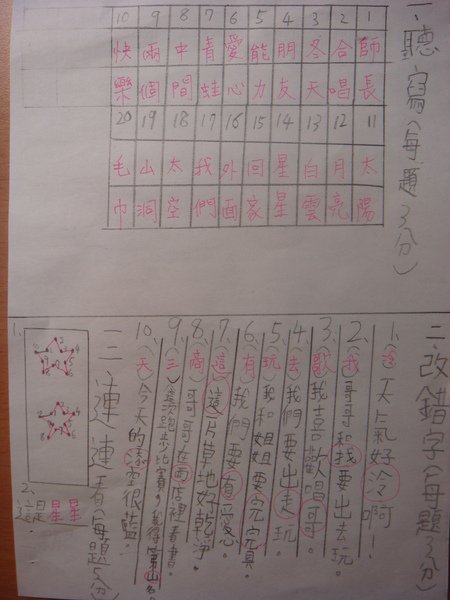 一、聽寫(每題3分)
1 師長
2 合唱
3 冬天
4 朋友
5 能力
6 愛心
7 青蛙
8 中間
9 兩個
10 快樂
11 太陽
12 月亮
13 白雲
14 星星
15 回家
16 外面
17 我們
18 太空
19 山洞
20 毛巾
二、改錯字(每題3分)
1.(冷)天氣好泠啊!
2.(我)哥哥和找要出去玩。
3.(歌)我喜歡唱哥。
4.(去)我們要出走玩。
5.(玩)我和姐姐要完
6.(有)我們要愛
7.(這)片草地好乾淨。
8.(商)哥哥在店裡看書。
9.(三)這次跑步比賽,我得第山名。
10.(天)今天的空很藍。
三、連連看(每題5分)
1.
2.這是星星